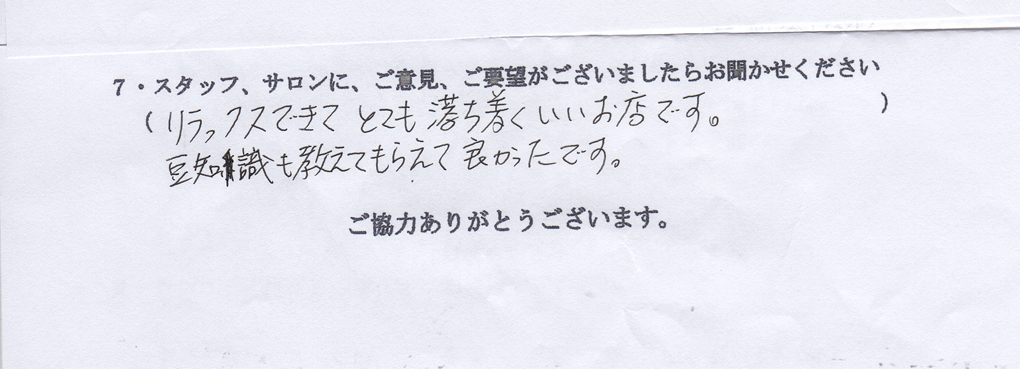 7・スタッフ、サロンに、ご意見、ご要望がございましたらお聞かせください
(リラックスできて とても 落ち着くいいお店です。)
豆知識も教えてもらえて良かったです。
ご協力ありがとうございます。